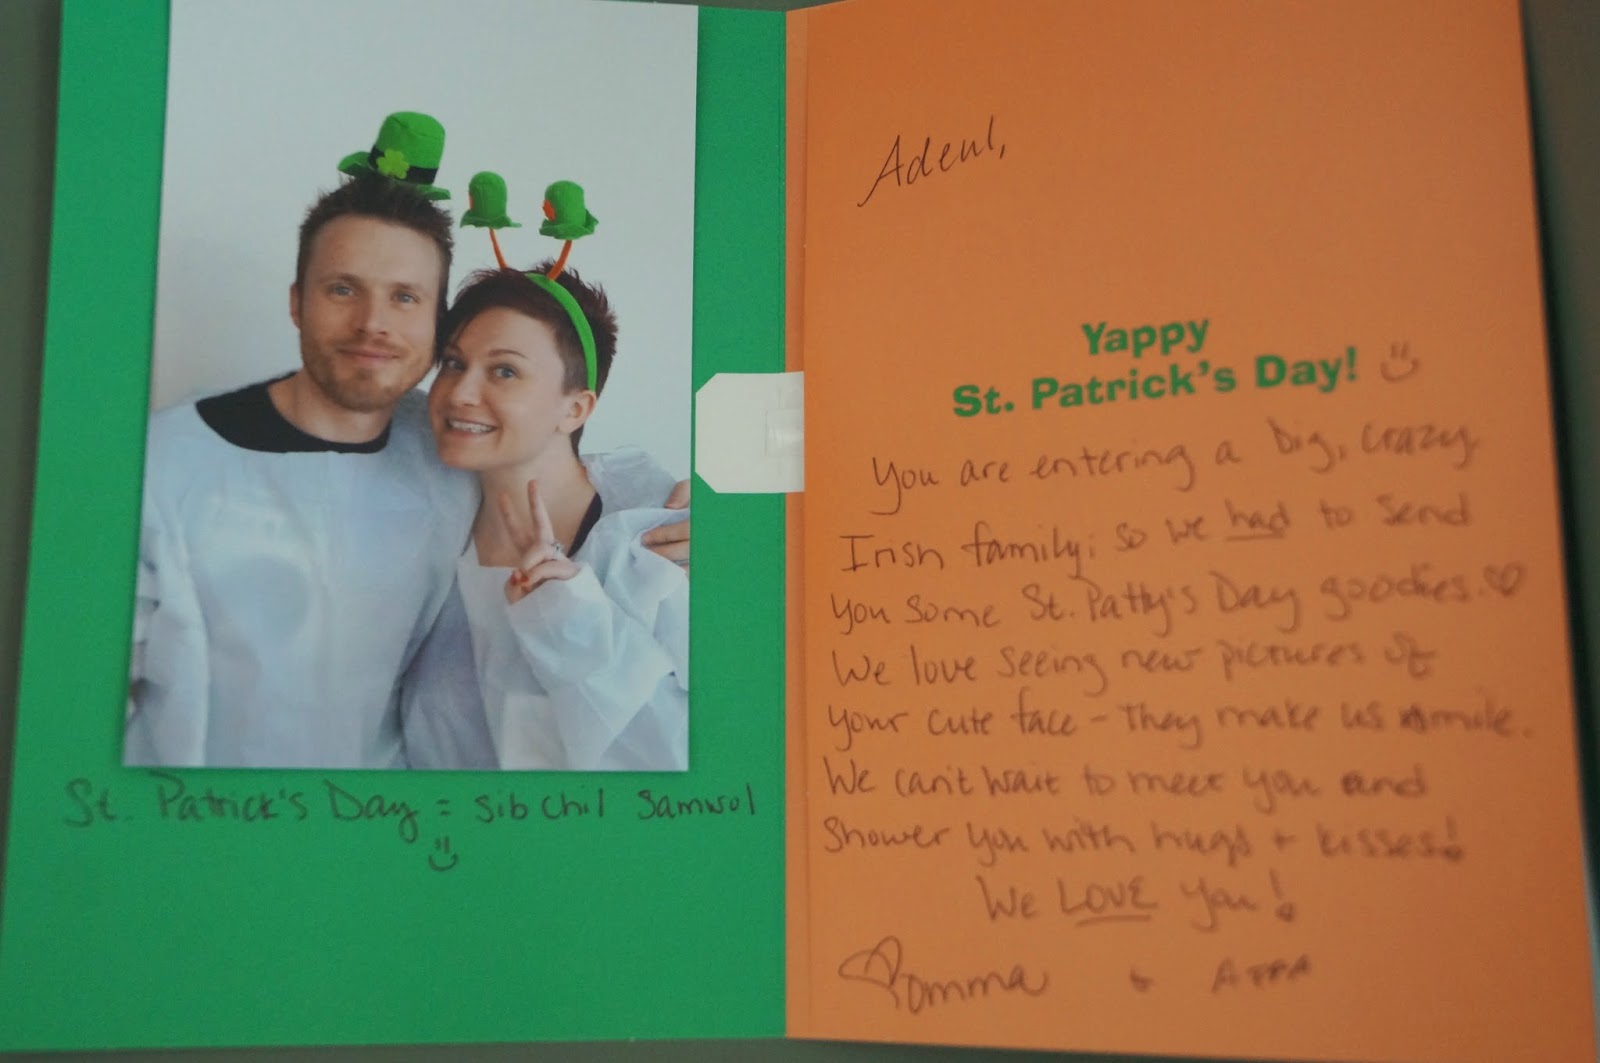 St. Patrick's Day = Sib Chil Samwol
Adeul,
Yappy
St. Patrick's Day!
You are entering a big, crazy
Irish family; so we had to send
you some St. Patty's Day goodies.
We love seeing new pictures of
your cute face - They make us smile.
We can't wait to meet you and
shower you with hugs + kisses!
We LOVE you!
Omma + APPA